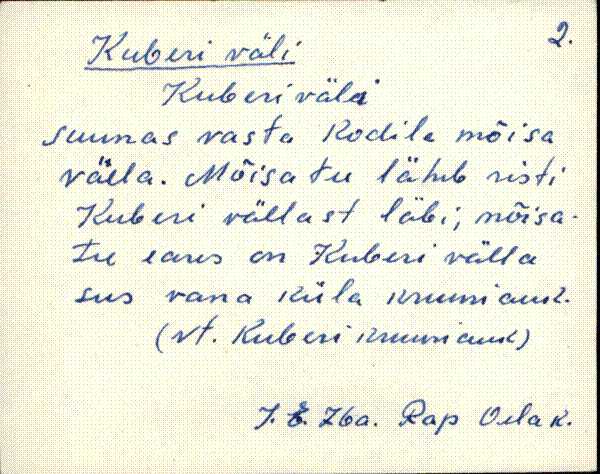 2.
Kuberi väli
Kuberi väli
suunas vasta Kodila mõisa
välla. Mõisa tu lähb risti
Kuberi vällast läbi, mõisa-
tu eares on Kuberi välla
sus vana küla kruusiauk.
(vt. Kuberi kruusiauk)
Rap